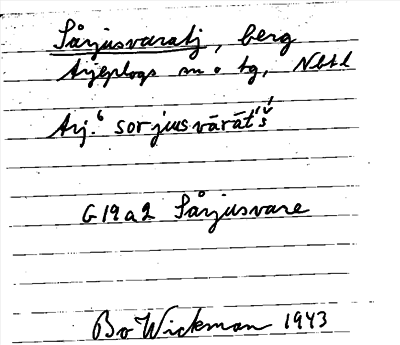 Sårjusvaratj, berg
Arjeplogs sn o. tg, Nbtl
Arj.⁶ sorjusvārāt́š́
G19a2 Sårjusvare
Bo Wickman 1943